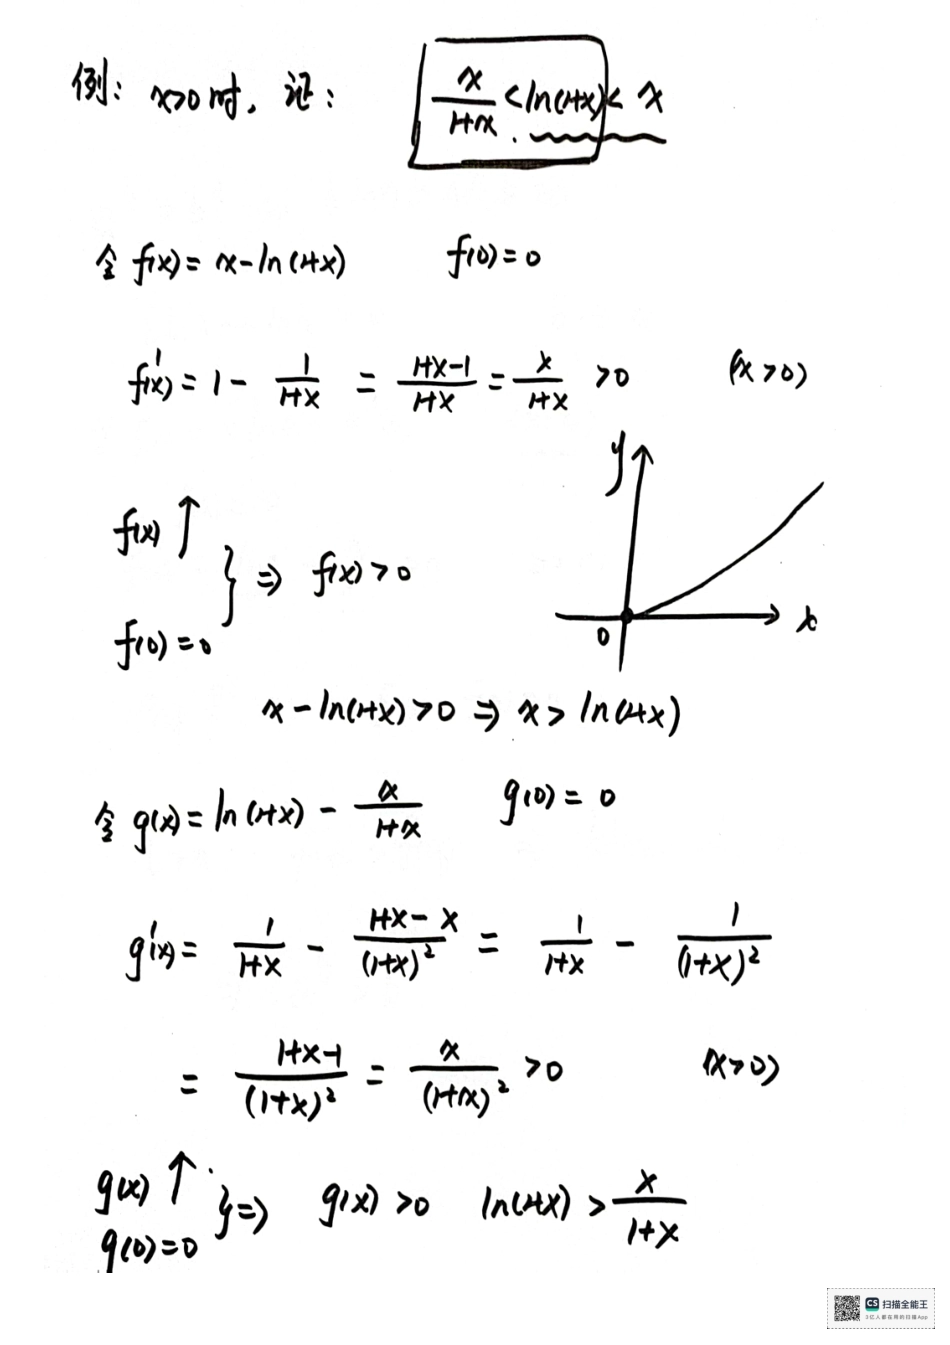 例: x>0时, 证: x/(1+x) < ln(1+x) < x
令 f(x) = x - ln(1+x) f(0) = 0
f'(x) = 1 - 1/(1+x) = (1+x-1)/(1+x) = x/(1+x) > 0 (x>0)
y
f(x) ↑
f(0) = 0 } ⇒ f(x) > 0
0 x
x - ln(1+x) > 0 ⇒ x > ln(1+x)
令 g(x) = ln(1+x) - x/(1+x) g(0) = 0
g'(x) = 1/(1+x) - (1+x-x)/(1+x)² = 1/(1+x) - 1/(1+x)²
= (1+x-1)/(1+x)² = x/(1+x)² > 0 (x>0)
g(x) ↑
g(0) = 0 } ⇒ g(x) > 0 ln(1+x) > x/(1+x)
CS 扫描全能王
3亿人都在用的扫描App